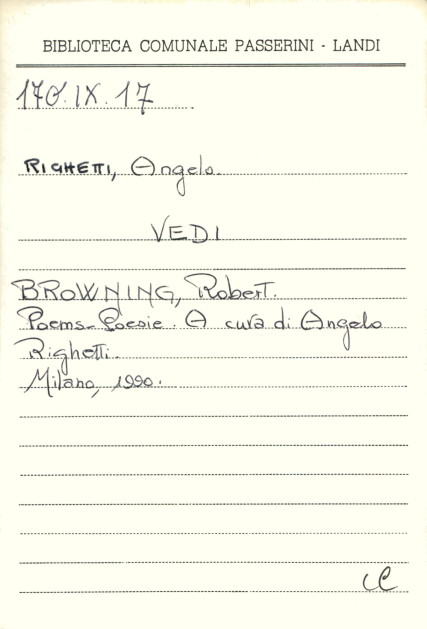 BIBLIOTECA COMUNALE PASSERINI - LANDI
170.IX.17
RIGHETTI, Angelo.
VEDI
BROWNING, Robert.
Poems-Poesie. A cura di Angelo
Righetti.
Milano, 1990.